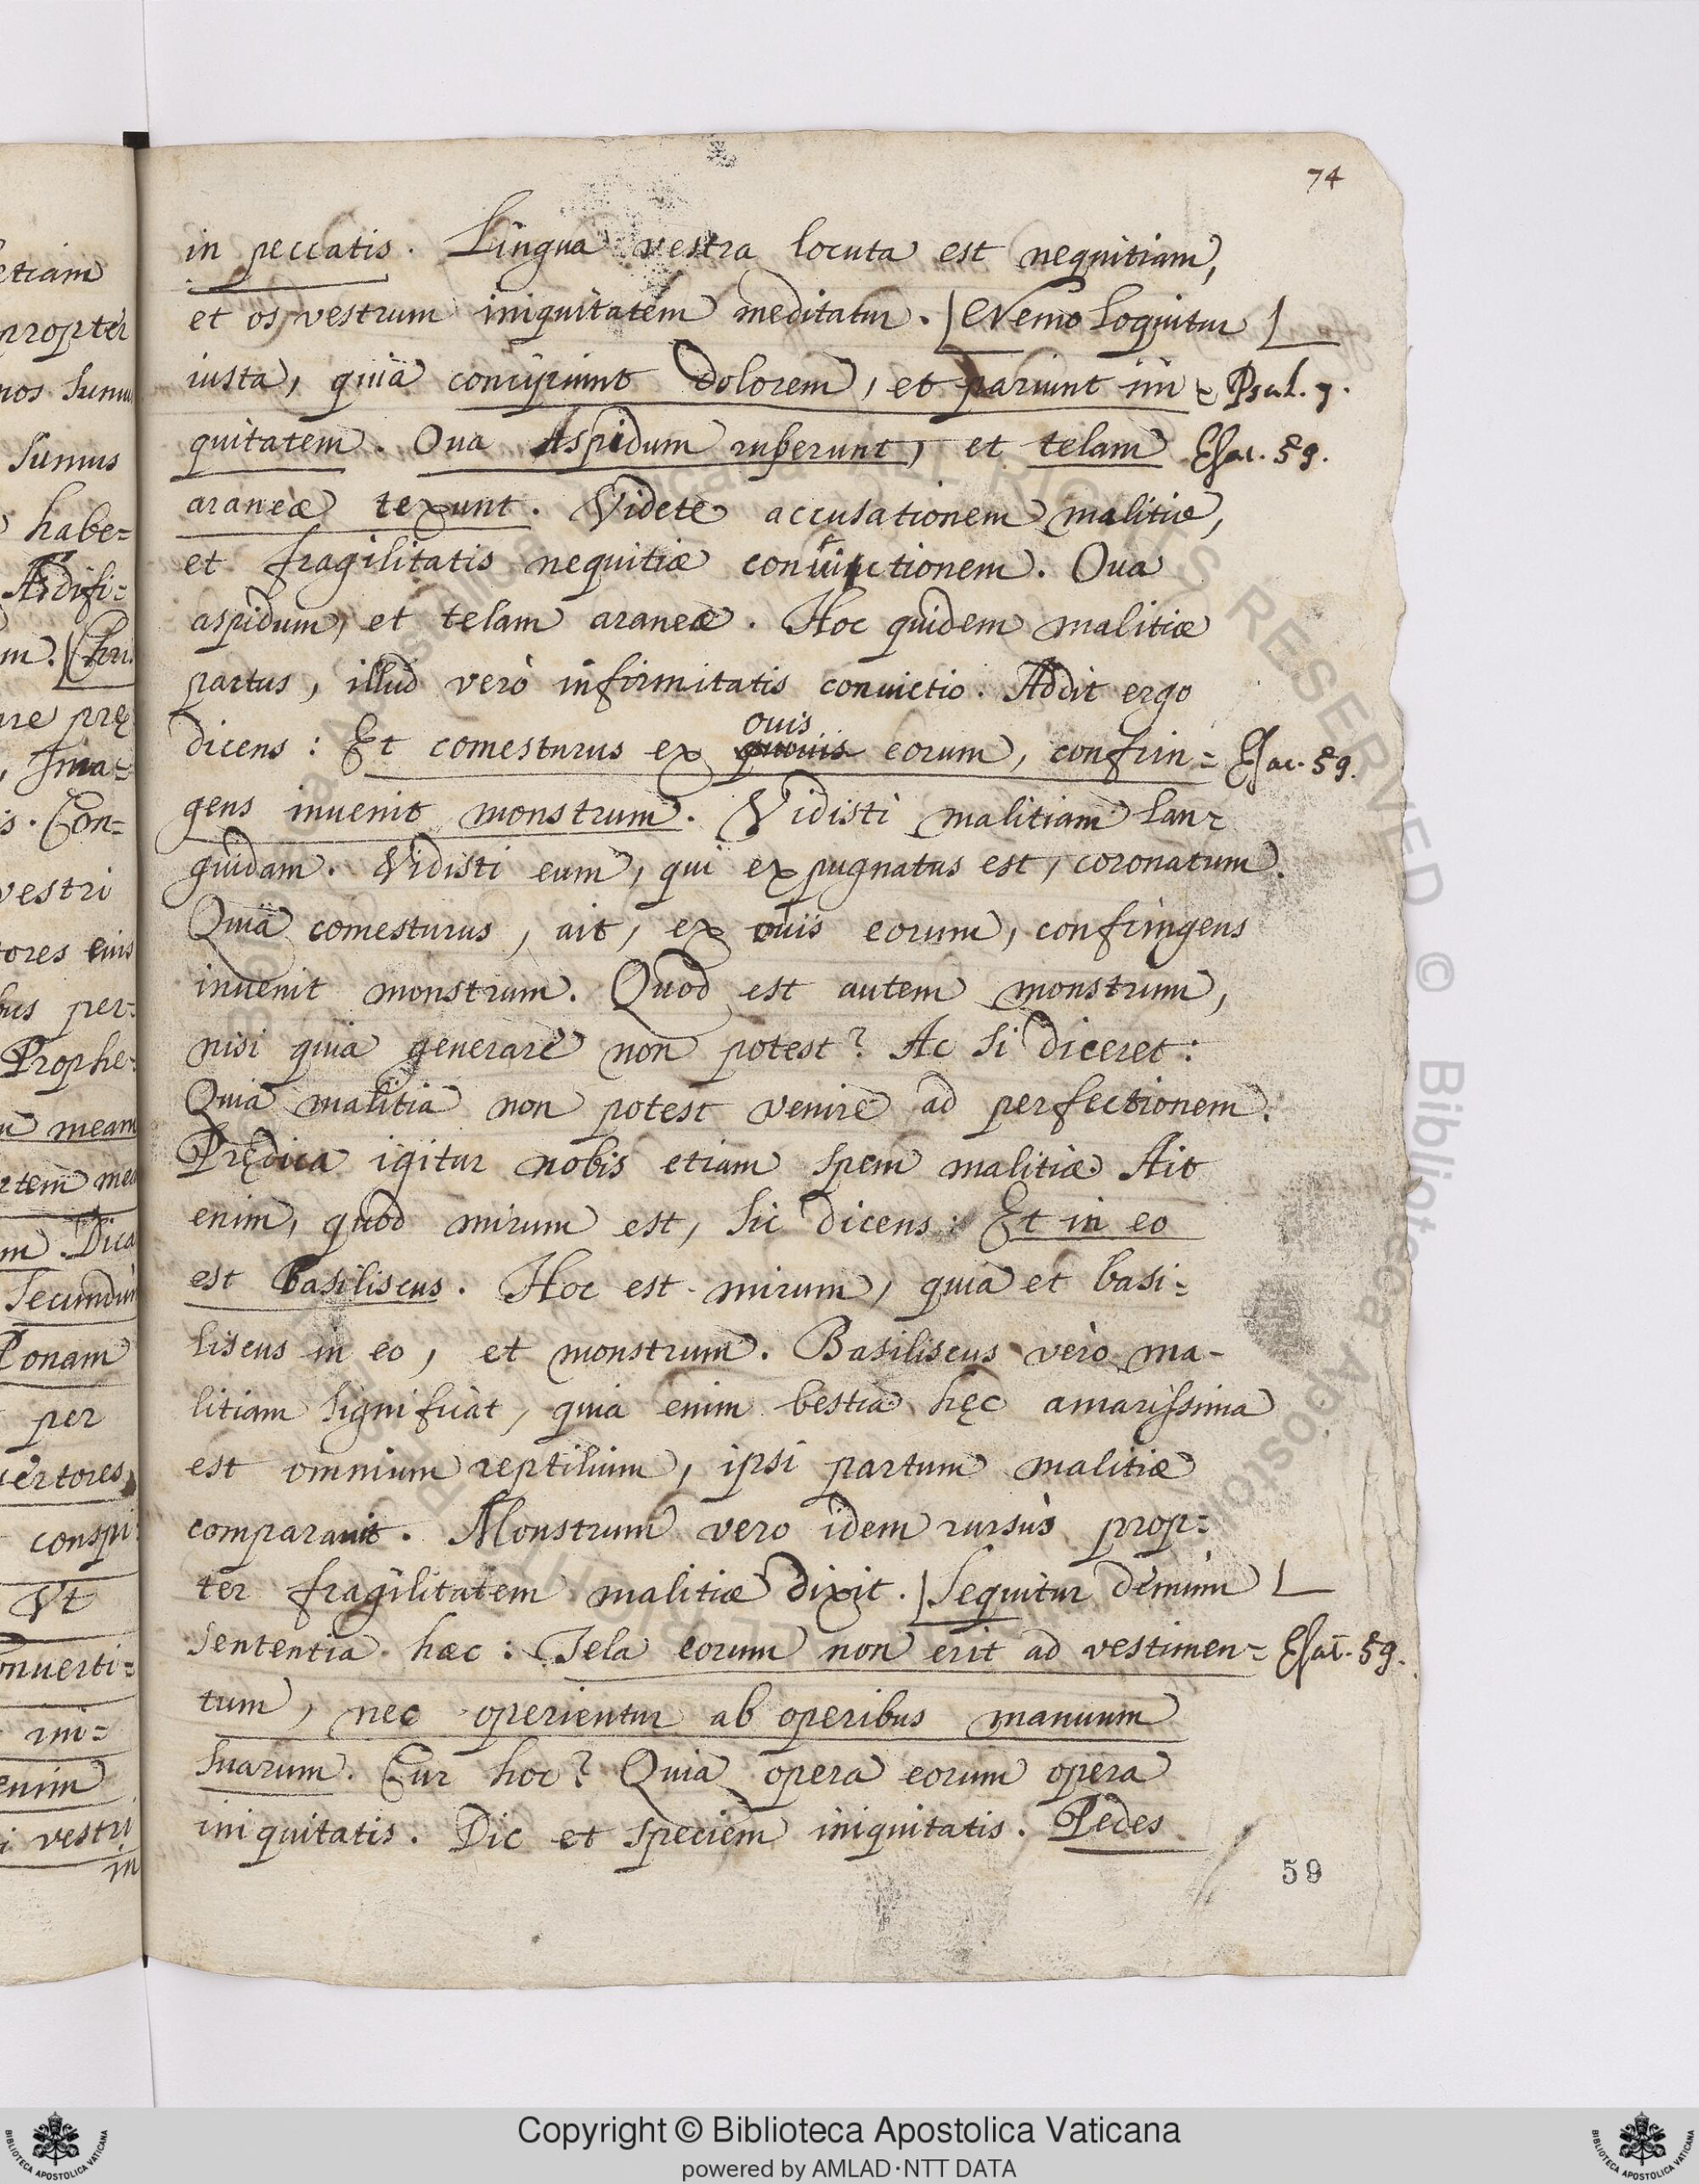 74
in peccatis. Lingua vestra locuta est nequitiam,
et os vestrum iniquitatem meditatur. Nemo loquitur
iusta, quia concipiunt dolorem, et pariunt ini= Psal. 7.
quitatem. Oua Aspidum ruperunt, et telam Esai. 59.
araneæ texunt. Videte accusationem malitiæ,
et fragilitatis nequitiæ conuictionem. Oua
aspidum, et telam araneæ. Hoc quidem malitiæ
partus, illud verò infirmitatis conuictio. Addit ergo
ouis
dicens: Et comesturus ex eorum, confrin= Esai. 59.
gens inuenit monstrum. Vidisti malitiam lan=
guidam. Vidisti eum, qui expugnatus est, coronatum.
Quia comesturus, ait, ex ouis eorum, confringens
inuenit monstrum. Quod est autem monstrum,
nisi quia generare non potest? Ac si diceret:
Quia malitia non potest venire ad perfectionem.
Prędica igitur nobis etiam spem malitiæ. Ait
enim, quod mirum est, sic dicens: Et in eo
est basiliscus. Hoc est mirum, quia et basi=
liscus in eo, et monstrum. Basiliscus verò ma-
litiam significat, quia enim bestia hęc amarissima
est omnium reptilium, ipsi partum malitiæ
comparauit. Monstrum vero idem rursùs prop=
ter fragilitatem malitiæ dixit. Sequitur demùm
sententia hæc: Tela eorum non erit ad vestimen= Esai. 59.
tum, nec operientur ab operibus manuum
suarum. Cur hoc? Quia opera eorum opera
iniquitatis. Dic et speciem iniquitatis. Pedes
59
Copyright © Biblioteca Apostolica Vaticana
powered by AMLAD·NTT DATA